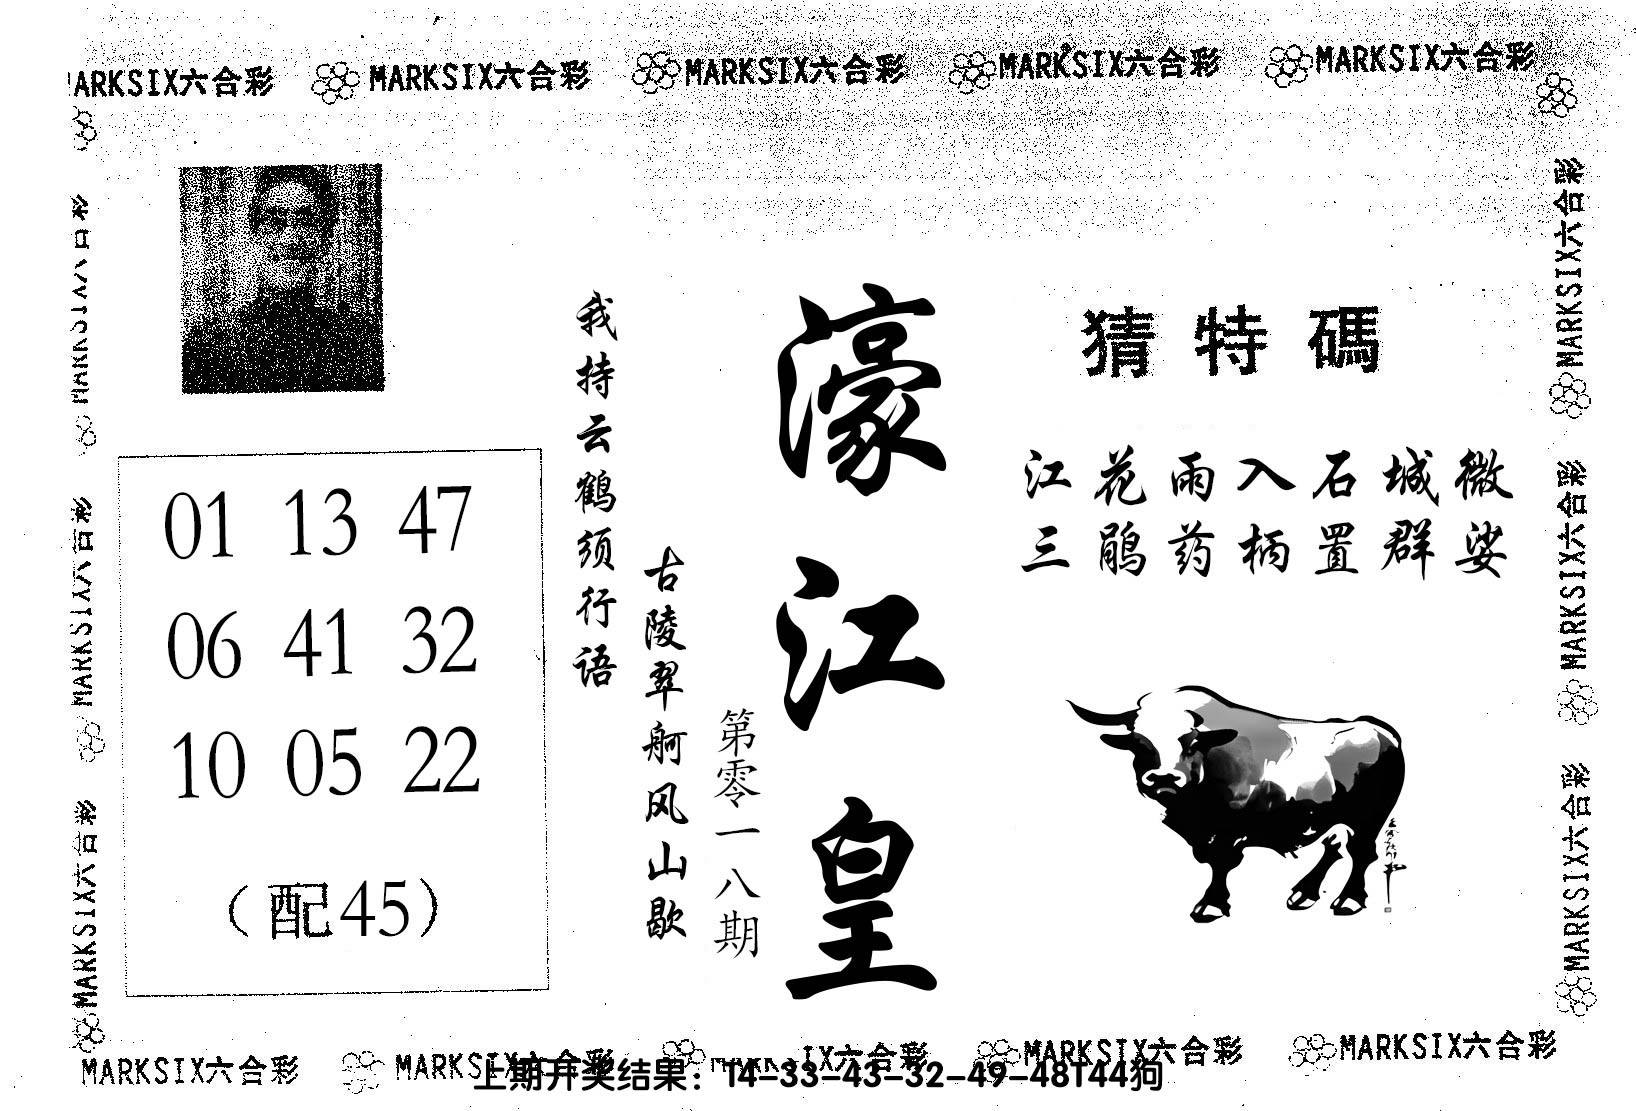 MARKSIX六合彩 MARKSIX六合彩 MARKSIX六合彩 MARKSIX六合彩 MARKSIX六合彩
MARKSIX六合彩
MARKSIX六合彩
MARKSIX六合彩
01 13 47
06 41 32
10 05 22
（配45）
我持云鹤须行语
古陵翠舸风山歇
第零一八期
濠江皇
猜特碼
江花雨入石城微
三鹃药柄置群娑
MARKSIX六合彩
MARKSIX六合彩
MARKSIX六合彩
MARKSIX六合彩 MARKSIX六合彩 六合彩 MARKSIX六合彩 MARKSIX六合彩
上期开奖结果：14-33-43-32-49-48T44狗